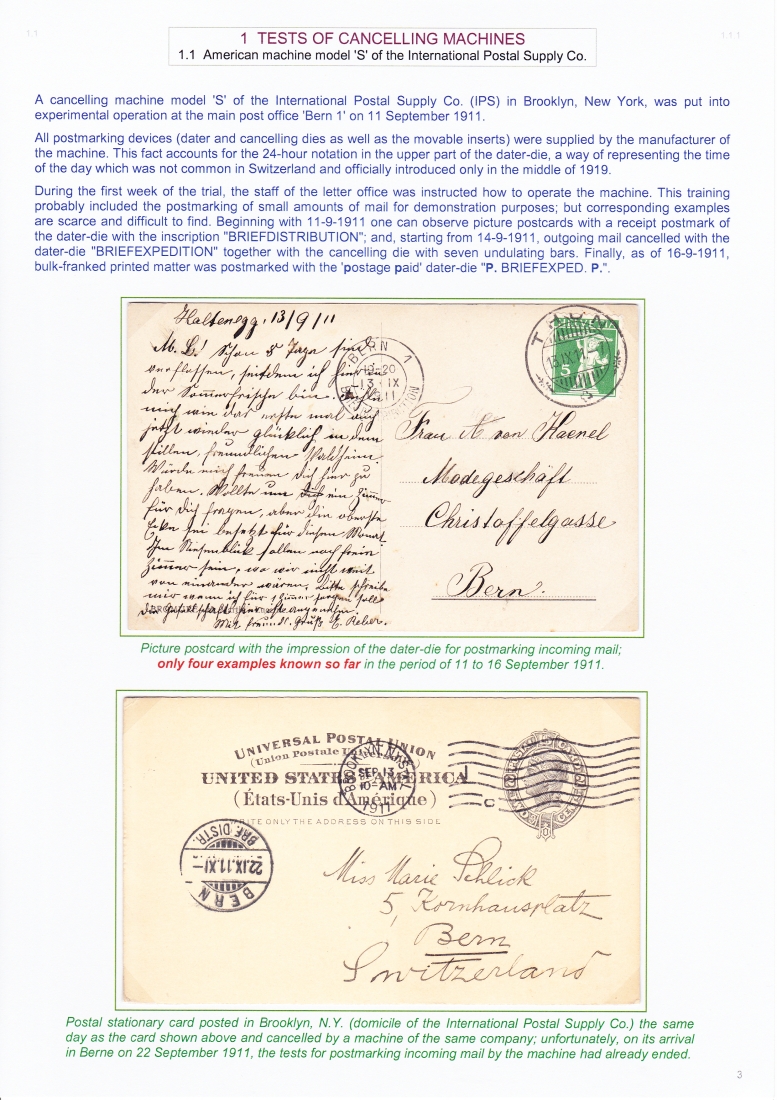 1 1
1.1.1
1 TESTS OF CANCELLING MACHINES
1.1 American machine model 'S' of the International Postal Supply Co.
A cancelling machine model 'S' of the International Postal Supply Co. (IPS) in Brooklyn, New York, was put into
experimental operation at the main post office 'Bern 1' on 11 September 1911.
All postmarking devices (dater and cancelling dies as well as the movable inserts) were supplied by the manufacturer of
the machine. This fact accounts for the 24-hour notation in the upper part of the dater-die, a way of representing the time
of the day which was not common in Switzerland and officially introduced only in the middle of 1919.
During the first week of the trial, the staff of the letter office was instructed how to operate the machine. This training
probably included the postmarking of small amounts of mail for demonstration purposes; but corresponding examples
are scarce and difficult to find. Beginning with 11-9-1911 one can observe picture postcards with a receipt postmark of
the dater-die with the inscription "BRIEFDISTRIBUTION"; and, starting from 14-9-1911, outgoing mail cancelled with the
dater-die "BRIEFEXPEDITION" together with the cancelling die with seven undulating bars. Finally, as of 16-9-1911,
bulk-franked printed matter was postmarked with the 'postage paid' dater-die "P. BRIEFEXPED. P.".
Haltenegg, 13/9/11
M. L! Schon 8 Tage sind
verflossen, seitdem ich hier in
der Sommerfrische bin.
mich wie das erste mal auch
jetzt wieder glücklich in dem
stillen, freundlichen Waldheim.
Würde mich freuen dich hier zu
haben. Wollte um ein Zimmer
für dich fragen, aber die oberste
Ecke sei besetzt für diesen Monat.
Im Niesenblick sollen noch freie
Zimmer sein, wo wir nicht weit
von einander wären. Bitte schreibe
mir wenn ich für Zimmer sorgen soll
Mit freundl. Gruß E. Reber.
BERN 1
-20
13 IX
11
THUN
13 IX 11
5
Frau von Haenel
Modegeschäft
Christoffelgasse
Bern.
Picture postcard with the impression of the dater-die for postmarking incoming mail;
only four examples known so far in the period of 11 to 16 September 1911.
UNIVERSAL POSTAL UNION
(Union Postale Universelle)
UNITED STATES OF AMERICA
(États-Unis d'Amérique)
WRITE ONLY THE ADDRESS ON THIS SIDE
BROOKLYN, N.Y.
SEP 13
10-AM
1911
1
C
BRF. DISTR.
22.IX.11.XI-
BERN
Miss Marie Schlick
5, Kornhausplatz
Bern
Switzerland
Postal stationary card posted in Brooklyn, N.Y. (domicile of the International Postal Supply Co.) the same
day as the card shown above and cancelled by a machine of the same company; unfortunately, on its arrival
in Berne on 22 September 1911, the tests for postmarking incoming mail by the machine had already ended.
3